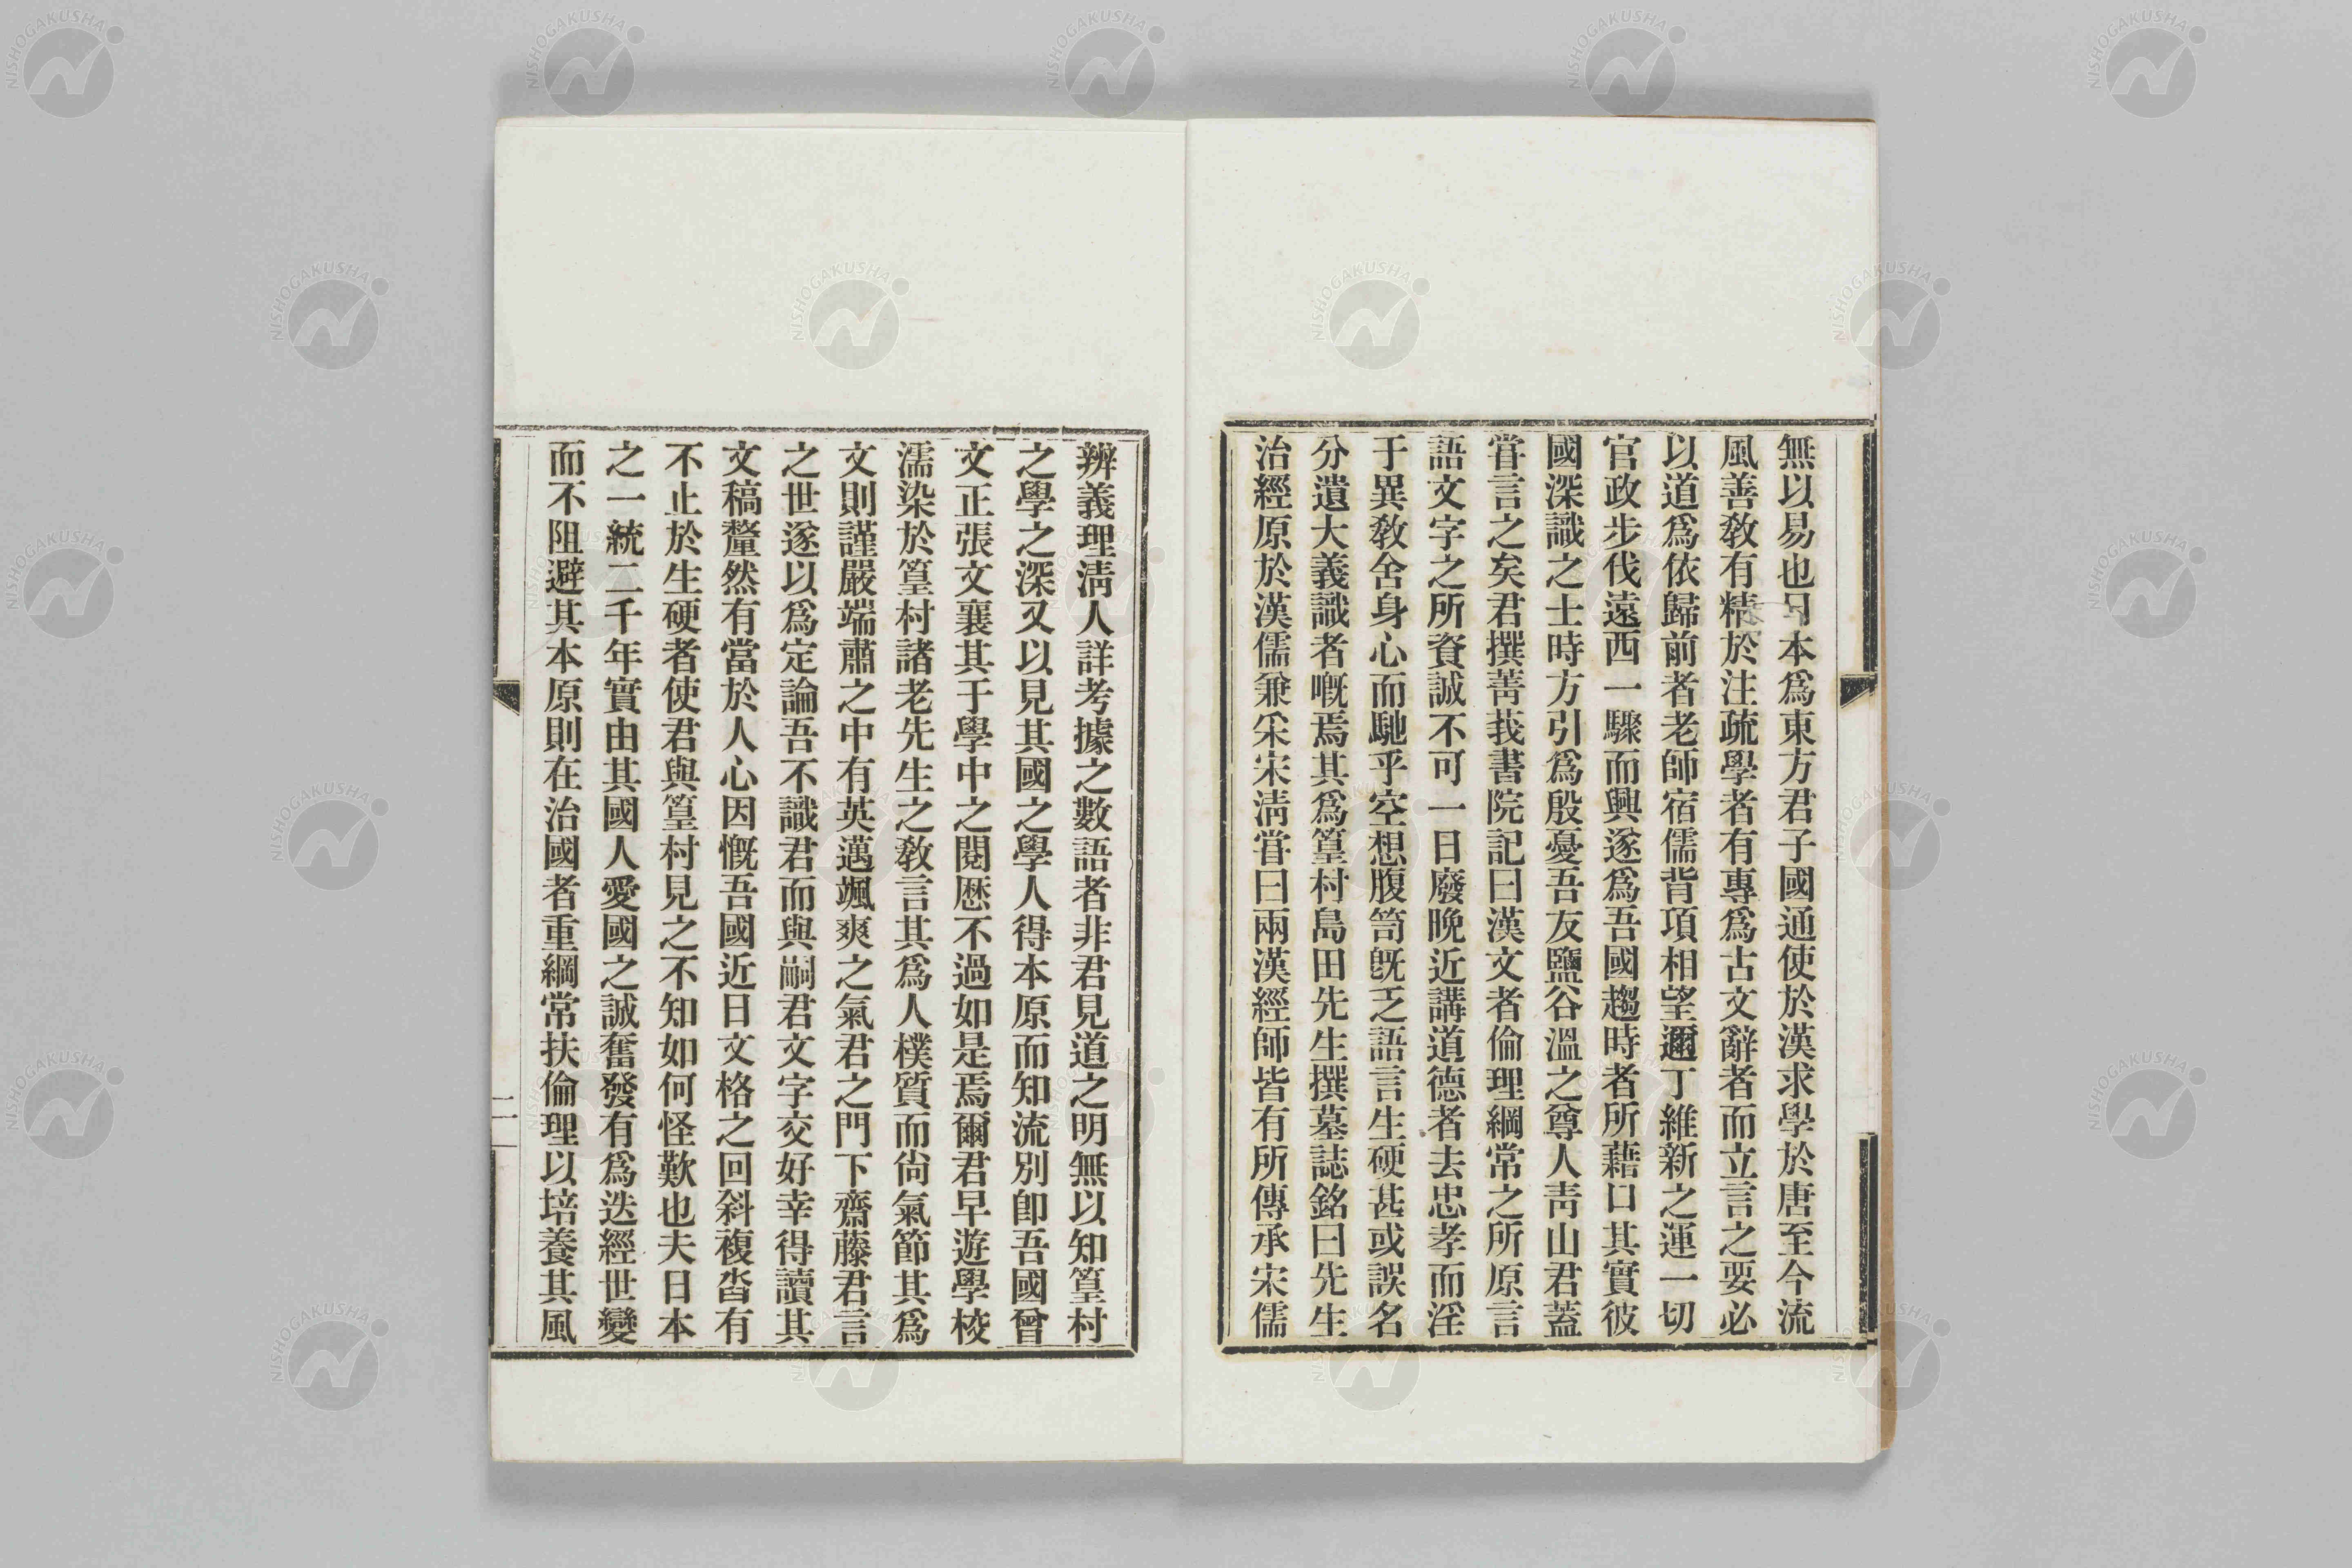 無以易也日本爲東方君子國通使於漢求學於唐至今流
風善敎有精於注疏學者有專爲古文辭者而立言之要必
以道爲依歸前者老師宿儒背項相望邇丁維新之運一切
官政步伐遠西一驟而興遂爲吾國趨時者所藉口其實彼
國深識之士時方引爲殷憂吾友鹽谷溫之尊人靑山君蓋
嘗言之矣君撰菁莪書院記曰漢文者倫理綱常之所原言
語文字之所資誠不可一日廢晚近講道德者去忠孝而淫
于異敎舍身心而馳乎空想腹笥旣乏語言生硬甚或誤名
分遺大義識者嘅焉其爲篁村島田先生撰墓誌銘曰先生
治經原於漢儒兼采宋淸嘗曰兩漢經師皆有所傳承宋儒
辨義理淸人詳考據之數語者非君見道之明無以知篁村
之學之深又以見其國之學人得本原而知流別卽吾國曾
文正張文襄其于學中之閱歷不過如是焉爾君早遊學校
濡染於篁村諸老先生之敎言其爲人樸質而尙氣節其爲
文則謹嚴端肅之中有英邁颯爽之氣君之門下齋藤君言
之世遂以爲定論吾不識君而與嗣君文字交好幸得讀其
文稿犛然有當於人心因慨吾國近日文格之回斜複沓有
不止於生硬者使君與篁村見之不知如何怪歎也夫日本
之一統二千年實由其國人愛國之誠奮發有爲迭經世變
而不阻避其本原則在治國者重綱常扶倫理以培養其風
二
NISHOGAKUSHA